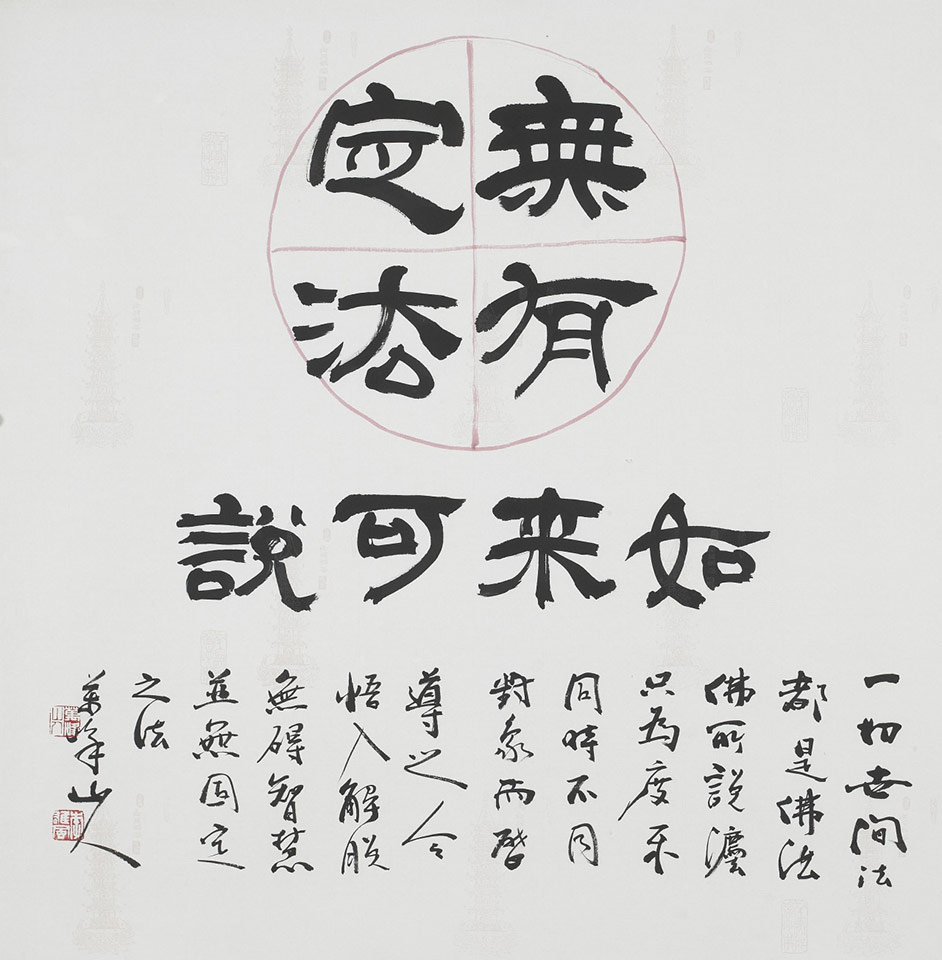 無有
定法
如来可說
一切世間法
都是佛法
佛所說灋
只為度不
同時不同
對象而啓
導之令
悟入解脫
無碍智慧
並無固定
之法
萬峯山人